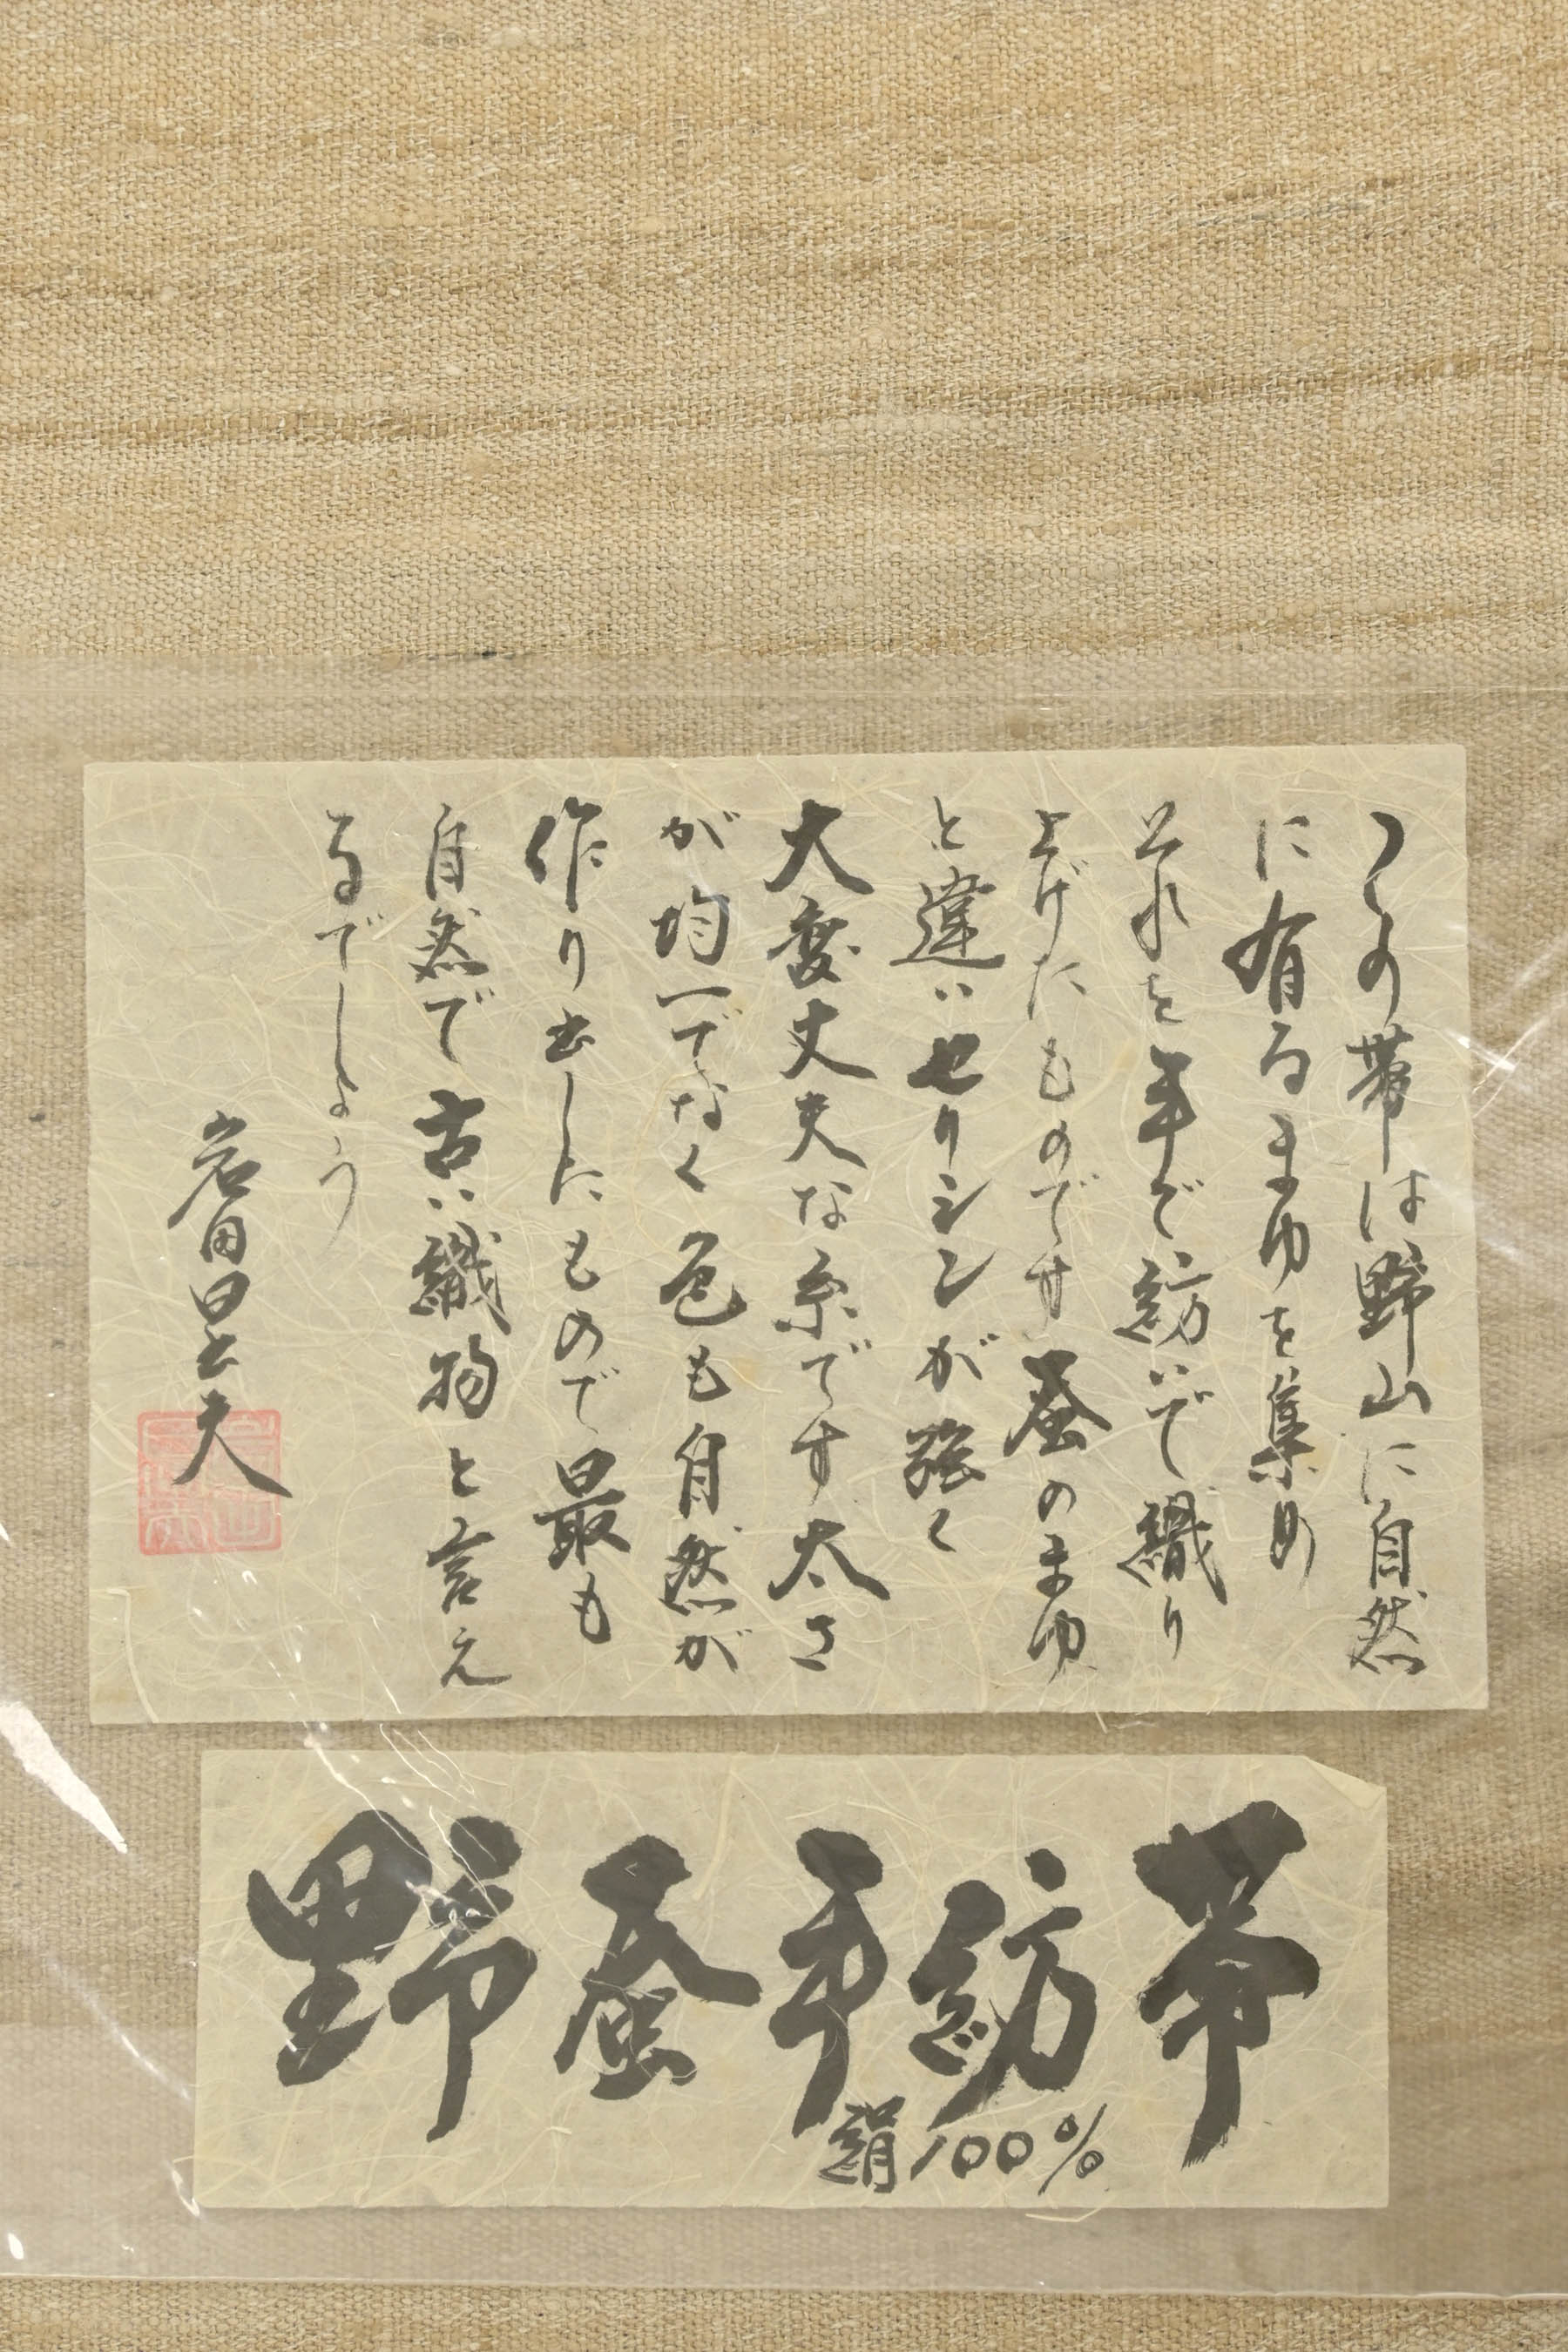 この帯は野山に自然
に有るまゆを集め
それを手で紡いで織り
上げたものです蚕のまゆ
と違いセリシンが強く
大変丈夫な糸です太さ
が均一でなく色も自然が
作り出したもので最も
自然で古い織物と言え
るでしょう
岩田
野蚕手紡帯
絹100%